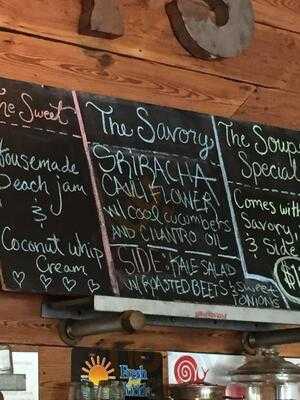 The Sweet
Housemade
Peach jam
&
Coconut whip
Cream
The Savory
SRIRACHA
CAULIFLOWER
W/ COOL CUCUMBERS
AND CILANTRO OIL
SIDE: KALE SALAD
W/ ROASTED BEETS & Sweet
ONIONS
The Soup
Special
Comes with
Savory
& Side
$
Fresh